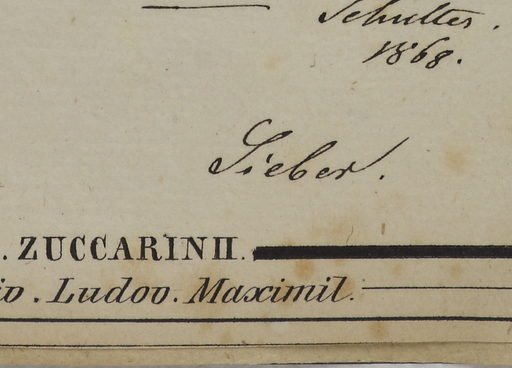 Schultes.
1868.
Sieber.
. ZUCCARINII.
iv. Ludov. Maximil.